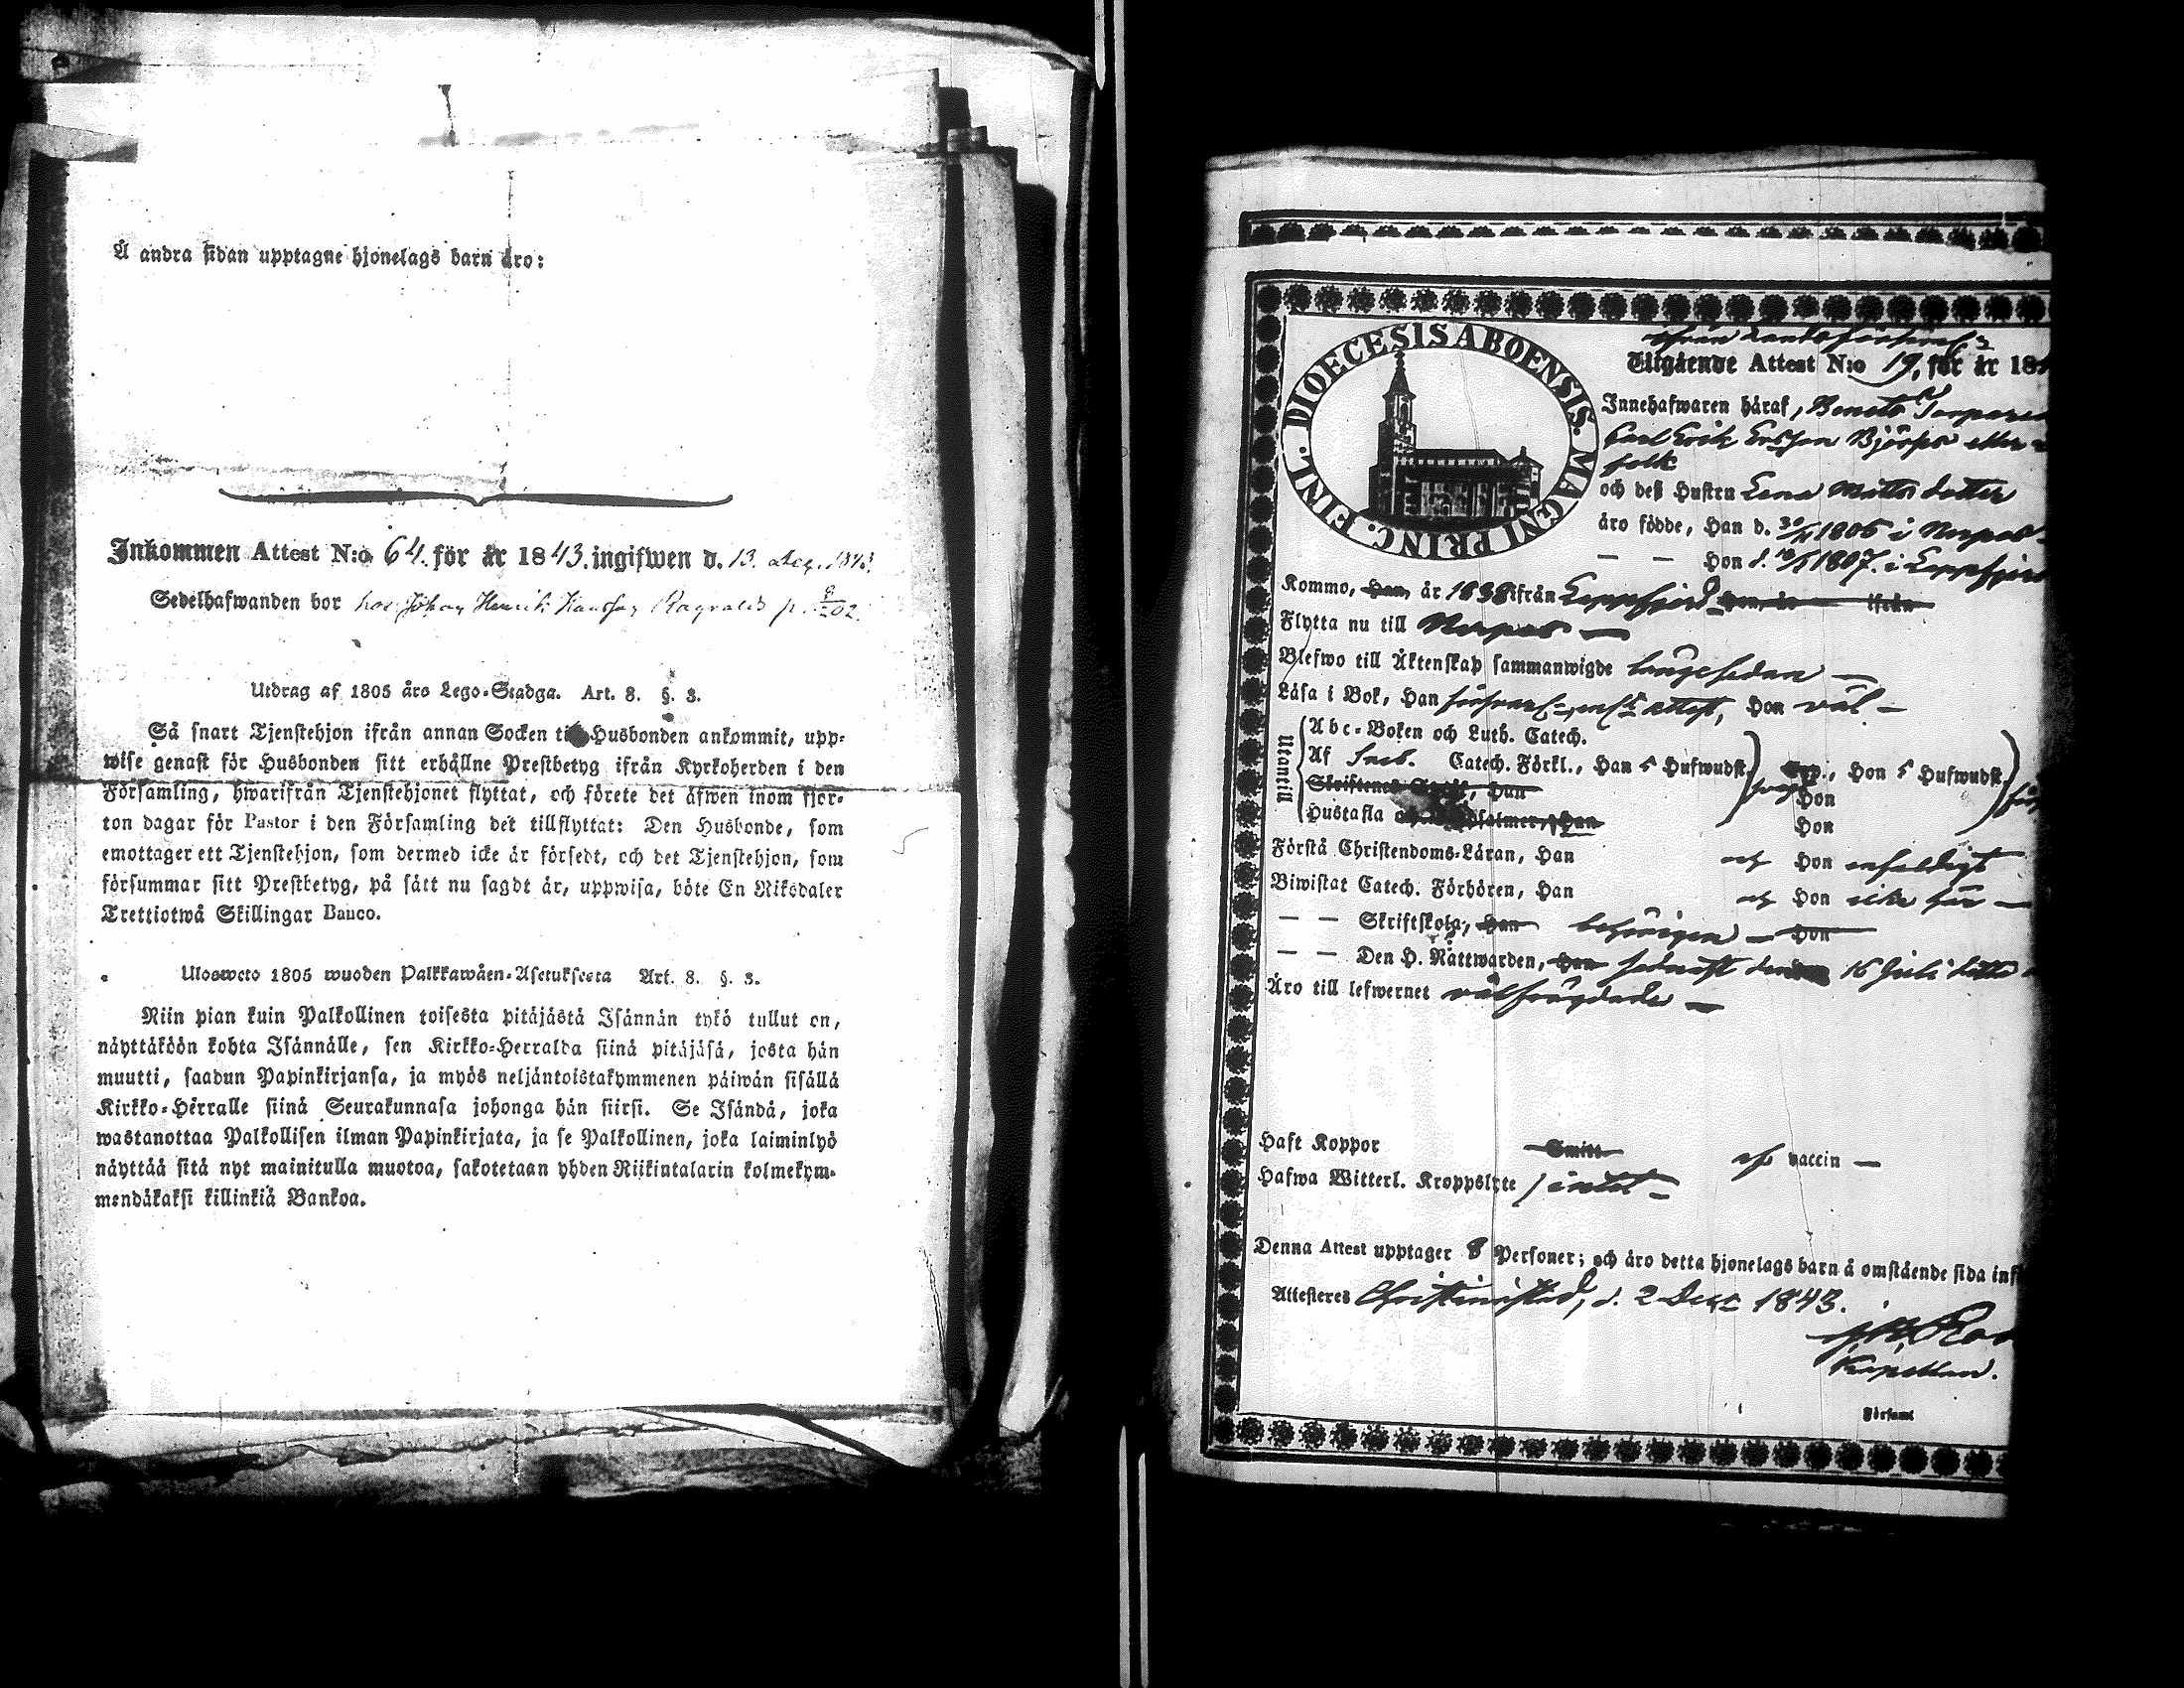 Å andra sidan upptagne hjonelags barn äro:
Inkommen Attest N:o 64. för år 1843. ingifwen d. 13. Dec. 1843.
Sedelhafwanden bor hos Johan Henrik Ragnals p. 202.
Utdrag af 1805 års Lego-Stadga. Art. 8. §. 3.
Så snart Tjenstehjon ifrån annan Socken till Husbonden ankommit, upp-
wise genast för Husbonden sitt erhållne Prestbetyg ifrån Kyrkoherden i den
Församling, hwarifrån Tjenstehjonet flyttat, och förete det äfwen inom fjor-
ton dagar för Pastor i den Församling det tillflyttat: Den Husbonde, som
emottager ett Tjenstehjon, som dermed icke är försedt, och det Tjenstehjon, som
försummar sitt Prestbetyg, på sätt nu sagdt är, uppwisa, böte En Riksdaler
Trettiotwå Skillingar Banco.
Ulosweto 1805 wuoden Palkkawäen-Asetuksesta Art. 8. §. 3.
Niin pian kuin Palkollinen toisesta pitäjästä Isännän tykö tullut on,
näyttäköön kohta Isännälle, sen Kirkko-Herralda siinä pitäjäsä, josta hän
muutti, saadun Papinkirjansa, ja myös neljäntoistakymmenen päiwän sisällä
Kirkko-Herralle siinä Seurakunnasa johonga hän siirsi. Se Isändä, joka
wastanottaa Palkollisen ilman Papinkirjata, ja se Palkollinen, joka laiminlyö
näyttää sitä nyt mainitulla muotoa, sakotetaan yhden Riikintalarin kolmekym-
mendäkaksi killinkiä Bankoa.
DIOECESIS ABOENSIS. MAGNI PRINC. FINL.
Utgående Attest N:o 19, för år 18
Innehafwaren häraf, Bonde
Carl Erik Ersson Björps eller
folk
och deß Hustru Lena Matts dotter
äro födde, Han d. 30/ 1805 i Nerpes
— — Hon d. 1807. i Lappfjerd
Kommo, Han, år 1838 ifrån Lappfjerd Hon, år ifrån
Flytta nu till Nerpes —
Blefwo till Äktenskap sammanwigde länge sedan —
Läsa i Bok, Han attest, Hon väl —
Utantill
Abc-Boken och Luth. Catech.
Af Sveb. Catech. Förkl., Han 5 Hufwudst. Hon 5 Hufwudst.
Skriftenes Språk, Han Hon
Hustafla Han Hon
Förstå Christendoms-Läran, Han och Hon enfaldigt
Biwistat Catech. Förhören, Han och Hon icke här —
— — Skriftskola, Han behörigen — Hon
— — Den H. Nattwarden, Han sednast den 16 Juli detta
Äro till lefwernet välfrägdade —
Haft Koppor Smitt vaccin —
Hafwa Witterl. Kroppslyte intet —
Denna Attest upptager 8 Personer; och äro detta hjonelags barn å omstående sida inf
Attesteres Christinestad, d. 2 Dec 1843.
Kapellan.
Församl